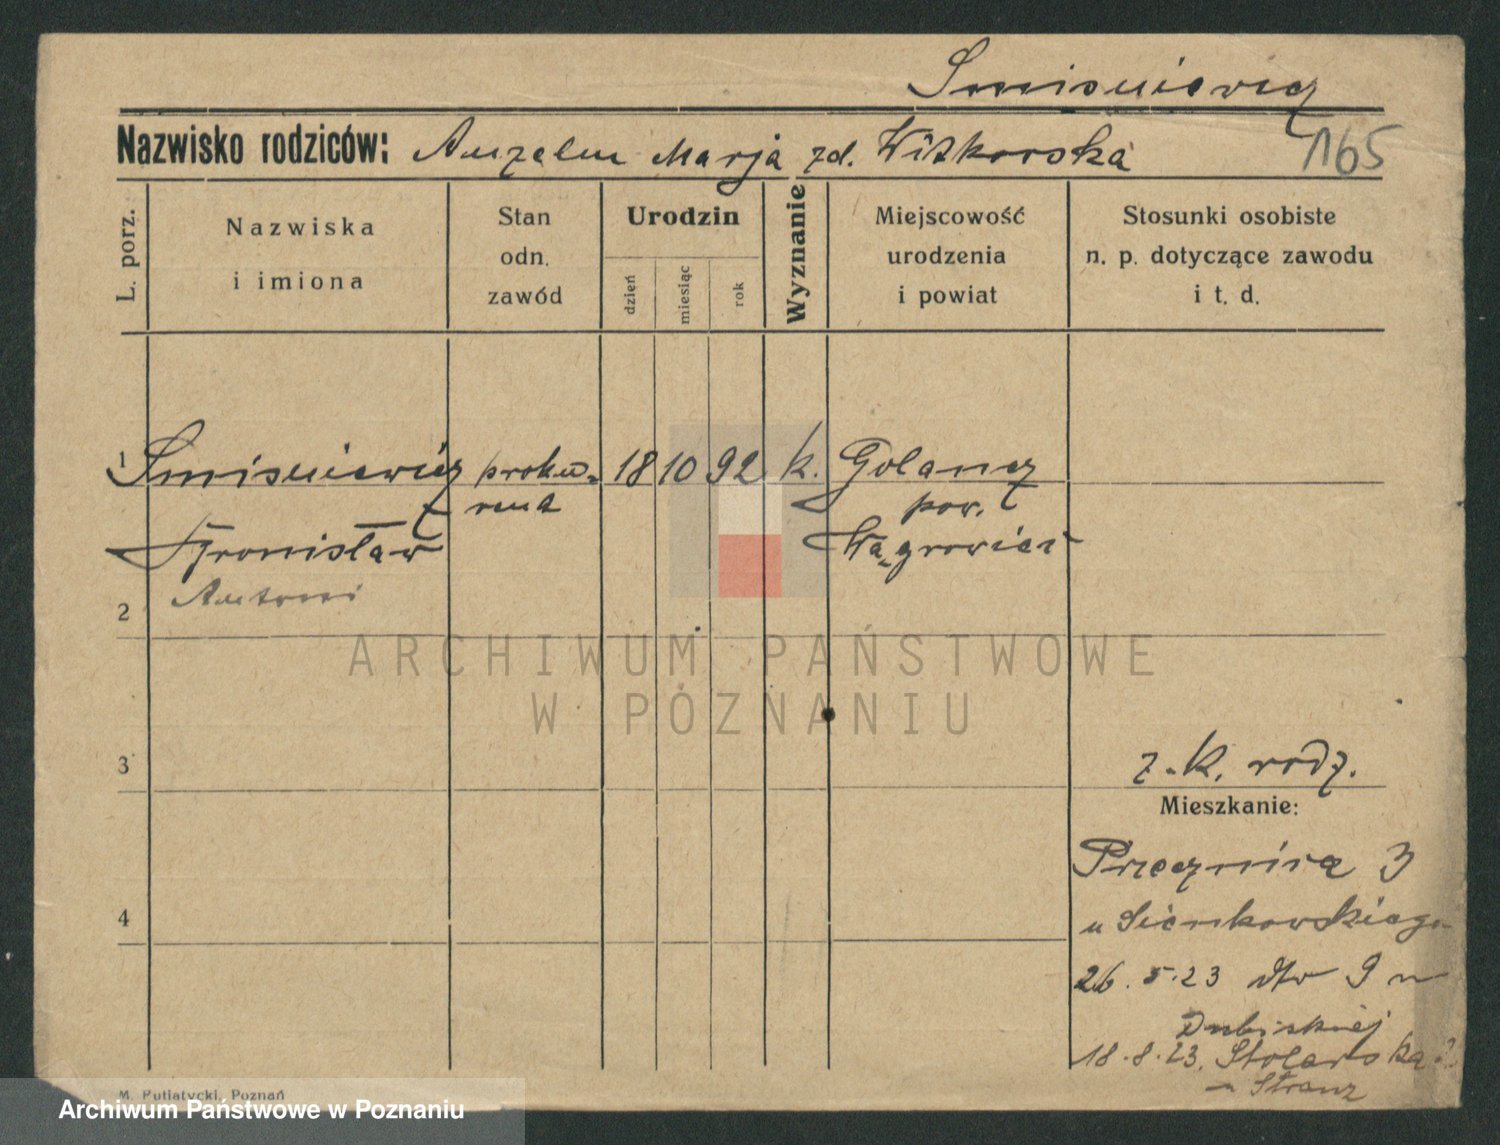 Smisniewicz
Nazwisko rodziców: Anzelm Marja zd. Witkowska
165
L. porz.
Nazwiska
i imiona
Stan
odn.
zawód
Urodzin
dzień
miesiąc
rok
Wyznanie
Miejscowość
urodzenia
i powiat
Stosunki osobiste
n. p. dotyczące zawodu
i t. d.
1 Smisniewicz proku- 18 10 92 k. Golancz
rent pow.
Bronisław Wągrowiec
Antoni
2
ARCHIWUM PAŃSTWOWE
W POZNANIU
3
z.k. rodz.
Mieszkanie:
Przecznica 3
4
u Sienkowskiego
26.5.23 dto 9 u
Dubiskiej
18.8.23. Stolarska
u Stranz
M. Putiatycki, Poznań
Archiwum Państwowe w Poznaniu